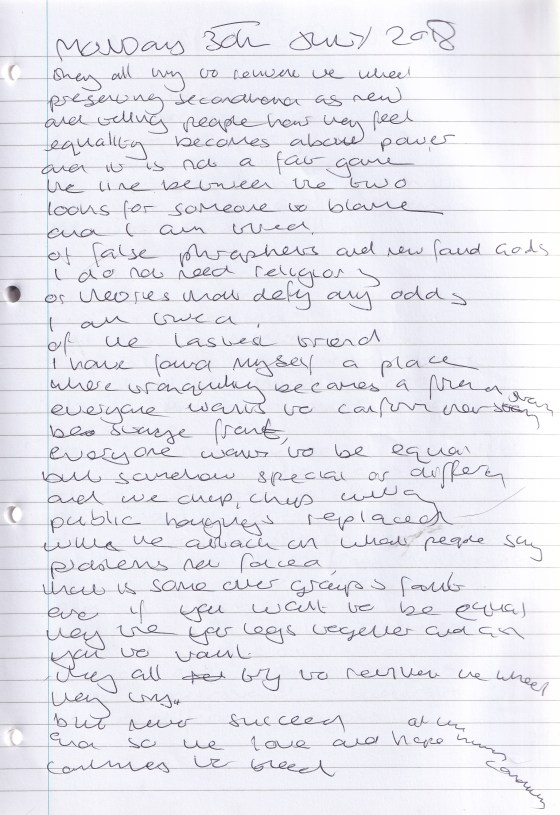 Monday 30th July 2018
they all try to reinvent the wheel
presenting secondhand as new
and telling people how they feel
equality becomes about power
and it is not a fair game
the line between the two
looks for someone to blame
and I am tired
of false prophets and new found Gods
I do not need religion
or theories that defy any odds
I am tired
of the latest trend
I have found myself a place
where tranquility becomes a friend
everyone wants to confirm their
be strange front
everyone wants to be equal
but somehow special or different
and the chip, chip
public hangings replaced
with the attack on what people say
problems not faced
that is some other groups fault
even if you want to be equal
they tie your legs together and ask
you to vault
they all try to reinvent the wheel
they try
but never succeed
and so the love and hope
continues to bleed